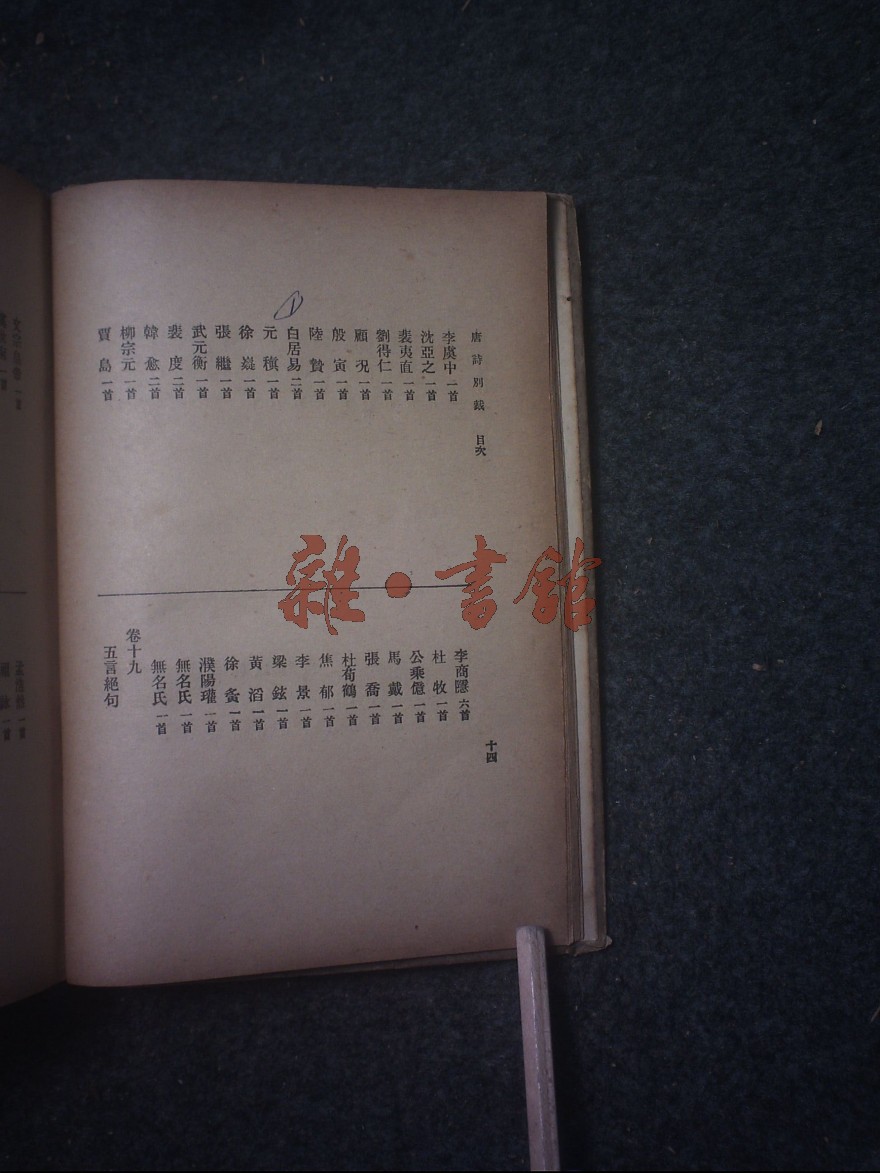 唐詩別裁 目次
李虞中 一首
沈亞之 一首
裴夷直 一首
劉得仁 一首
顧況 一首
殷寅 一首
陸贄 一首
白居易 二首
元稹 一首
徐嶷 一首
張繼 一首
武元衡 一首
裴度 二首
韓愈 二首
柳宗元 一首
賈島 一首
李商隱 六首
杜牧 一首
公乘億 一首
馬戴 一首
張喬 一首
杜荀鶴 一首
焦郁 一首
李景 一首
梁鉉 一首
黃滔 一首
徐夤 一首
濮陽瓘 一首
無名氏 一首
無名氏 一首
卷十九
五言絕句
十四
雜·書館